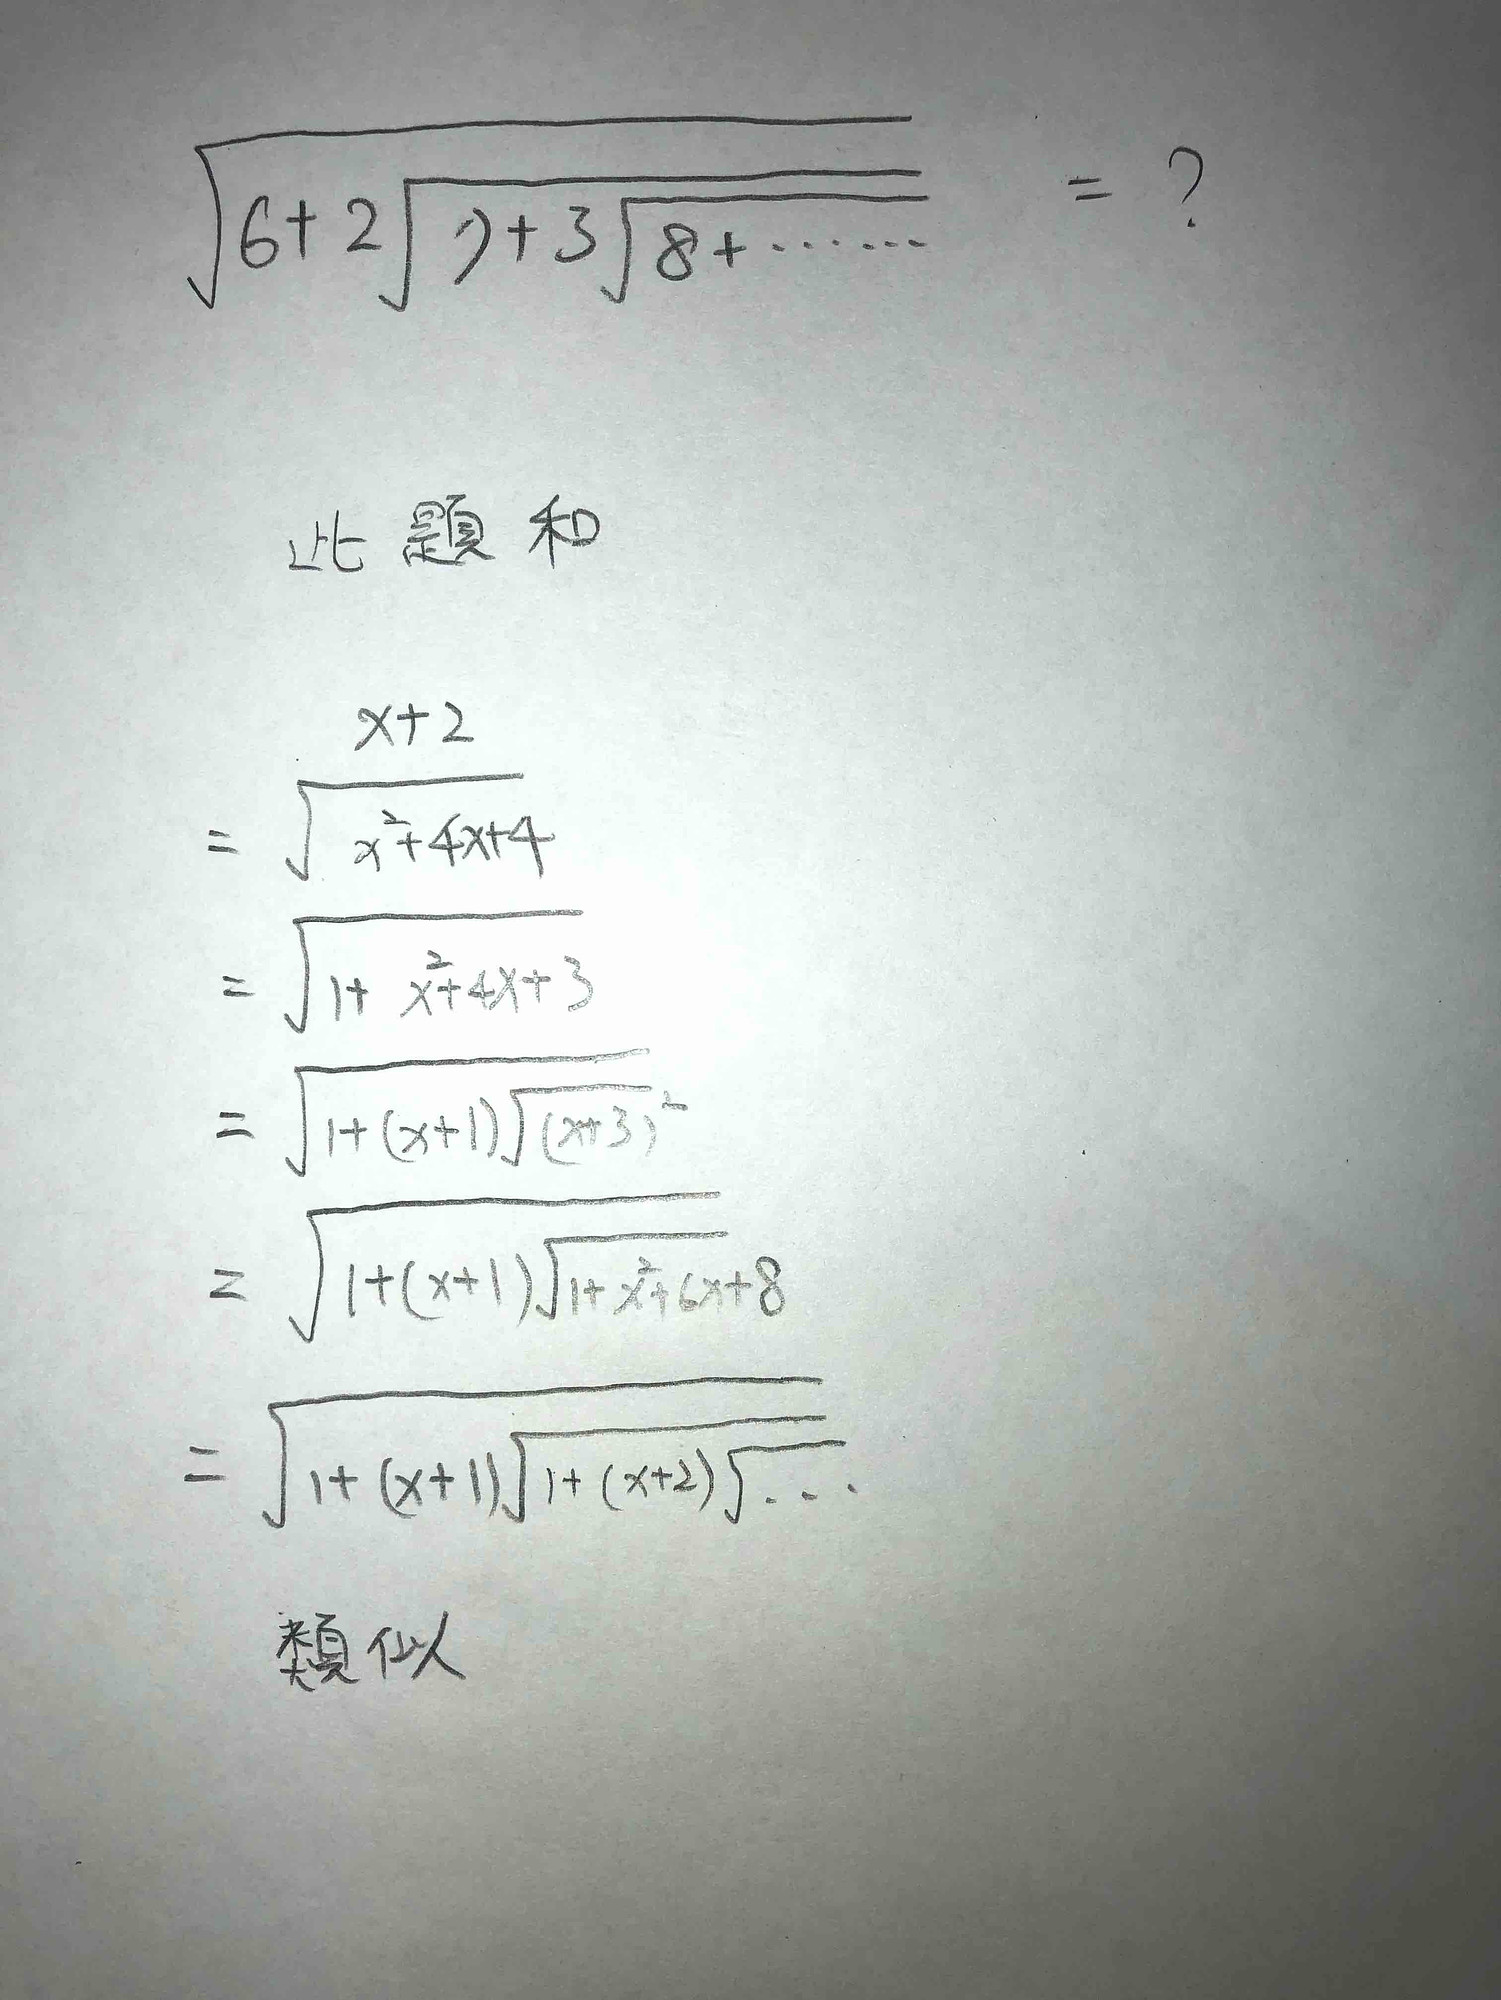 √(6+2√(7+3√(8+······))) = ?
此題和
x+2
= √(x²+4x+4)
= √(1+x²+4x+3)
= √(1+(x+1)√(x+3)²)
= √(1+(x+1)√(1+x²+6x+8))
= √(1+(x+1)√(1+(x+2)√...))
類似